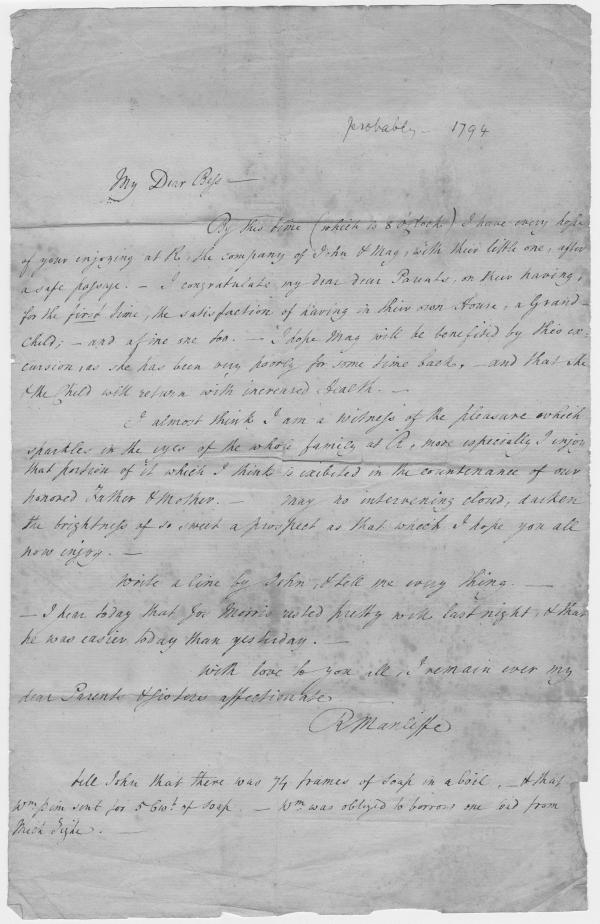 probably — 1794
My Dear Bess —
By this time (which is 8 o'Clock) I have every hope
of your enjoying at R, the company of John & Mag, with their little one, after
a safe passage. — I congratulate my dear dear Parents, on their having,
for the first time, the satisfaction of having in their own House, a Grand-
Child; — and a fine one too. — I hope Mag will be benefited by this ex-
cursion, as she has been very poorly for some time back, — and that she
& the Child will return with increased Health. —
I almost think I am a witness of the pleasure which
sparkles in the eyes of the whole family at R, more especially I enjoy
that portion of it which I think is exibited in the countenance of our
honored Father & Mother. — May no intervening cloud, darken
the brightness of so sweet a prospect as that which I hope you all
now enjoy. —
Write a line by John, & tell me every thing. —
— I hear today that Joe Morris rested pretty well last night, & that
he was easier today than yesterday. —
With love to you all, I remain ever my
dear Parents & sisters affectionate
R Wancliffe
tell John that there was 74 frames of soap in a boil, — & that
Wm sent for 5 Cwt of soap. — Wm was obliged to borrow one from